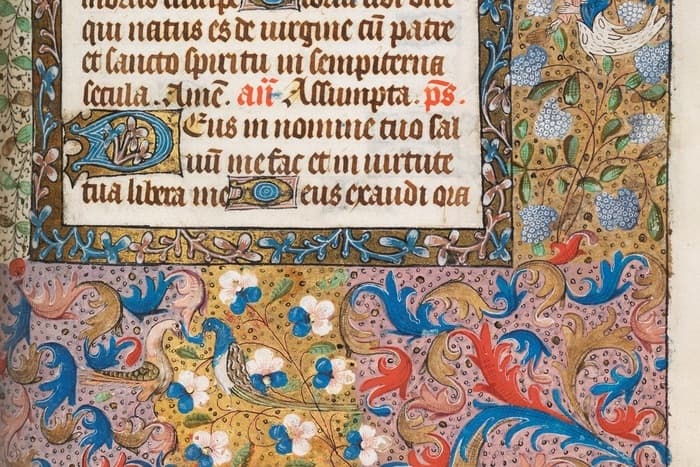 mortis suscipe Gloria tibi dñe
qui natus es de uirgine cū patre
et sancto spiritu in sempiterna
secula . Amē. añ Assumpta . p̄s.
Deus in nomine tuo sal
uū me fac et in uirtute
tua libera me Deus exaudi ora